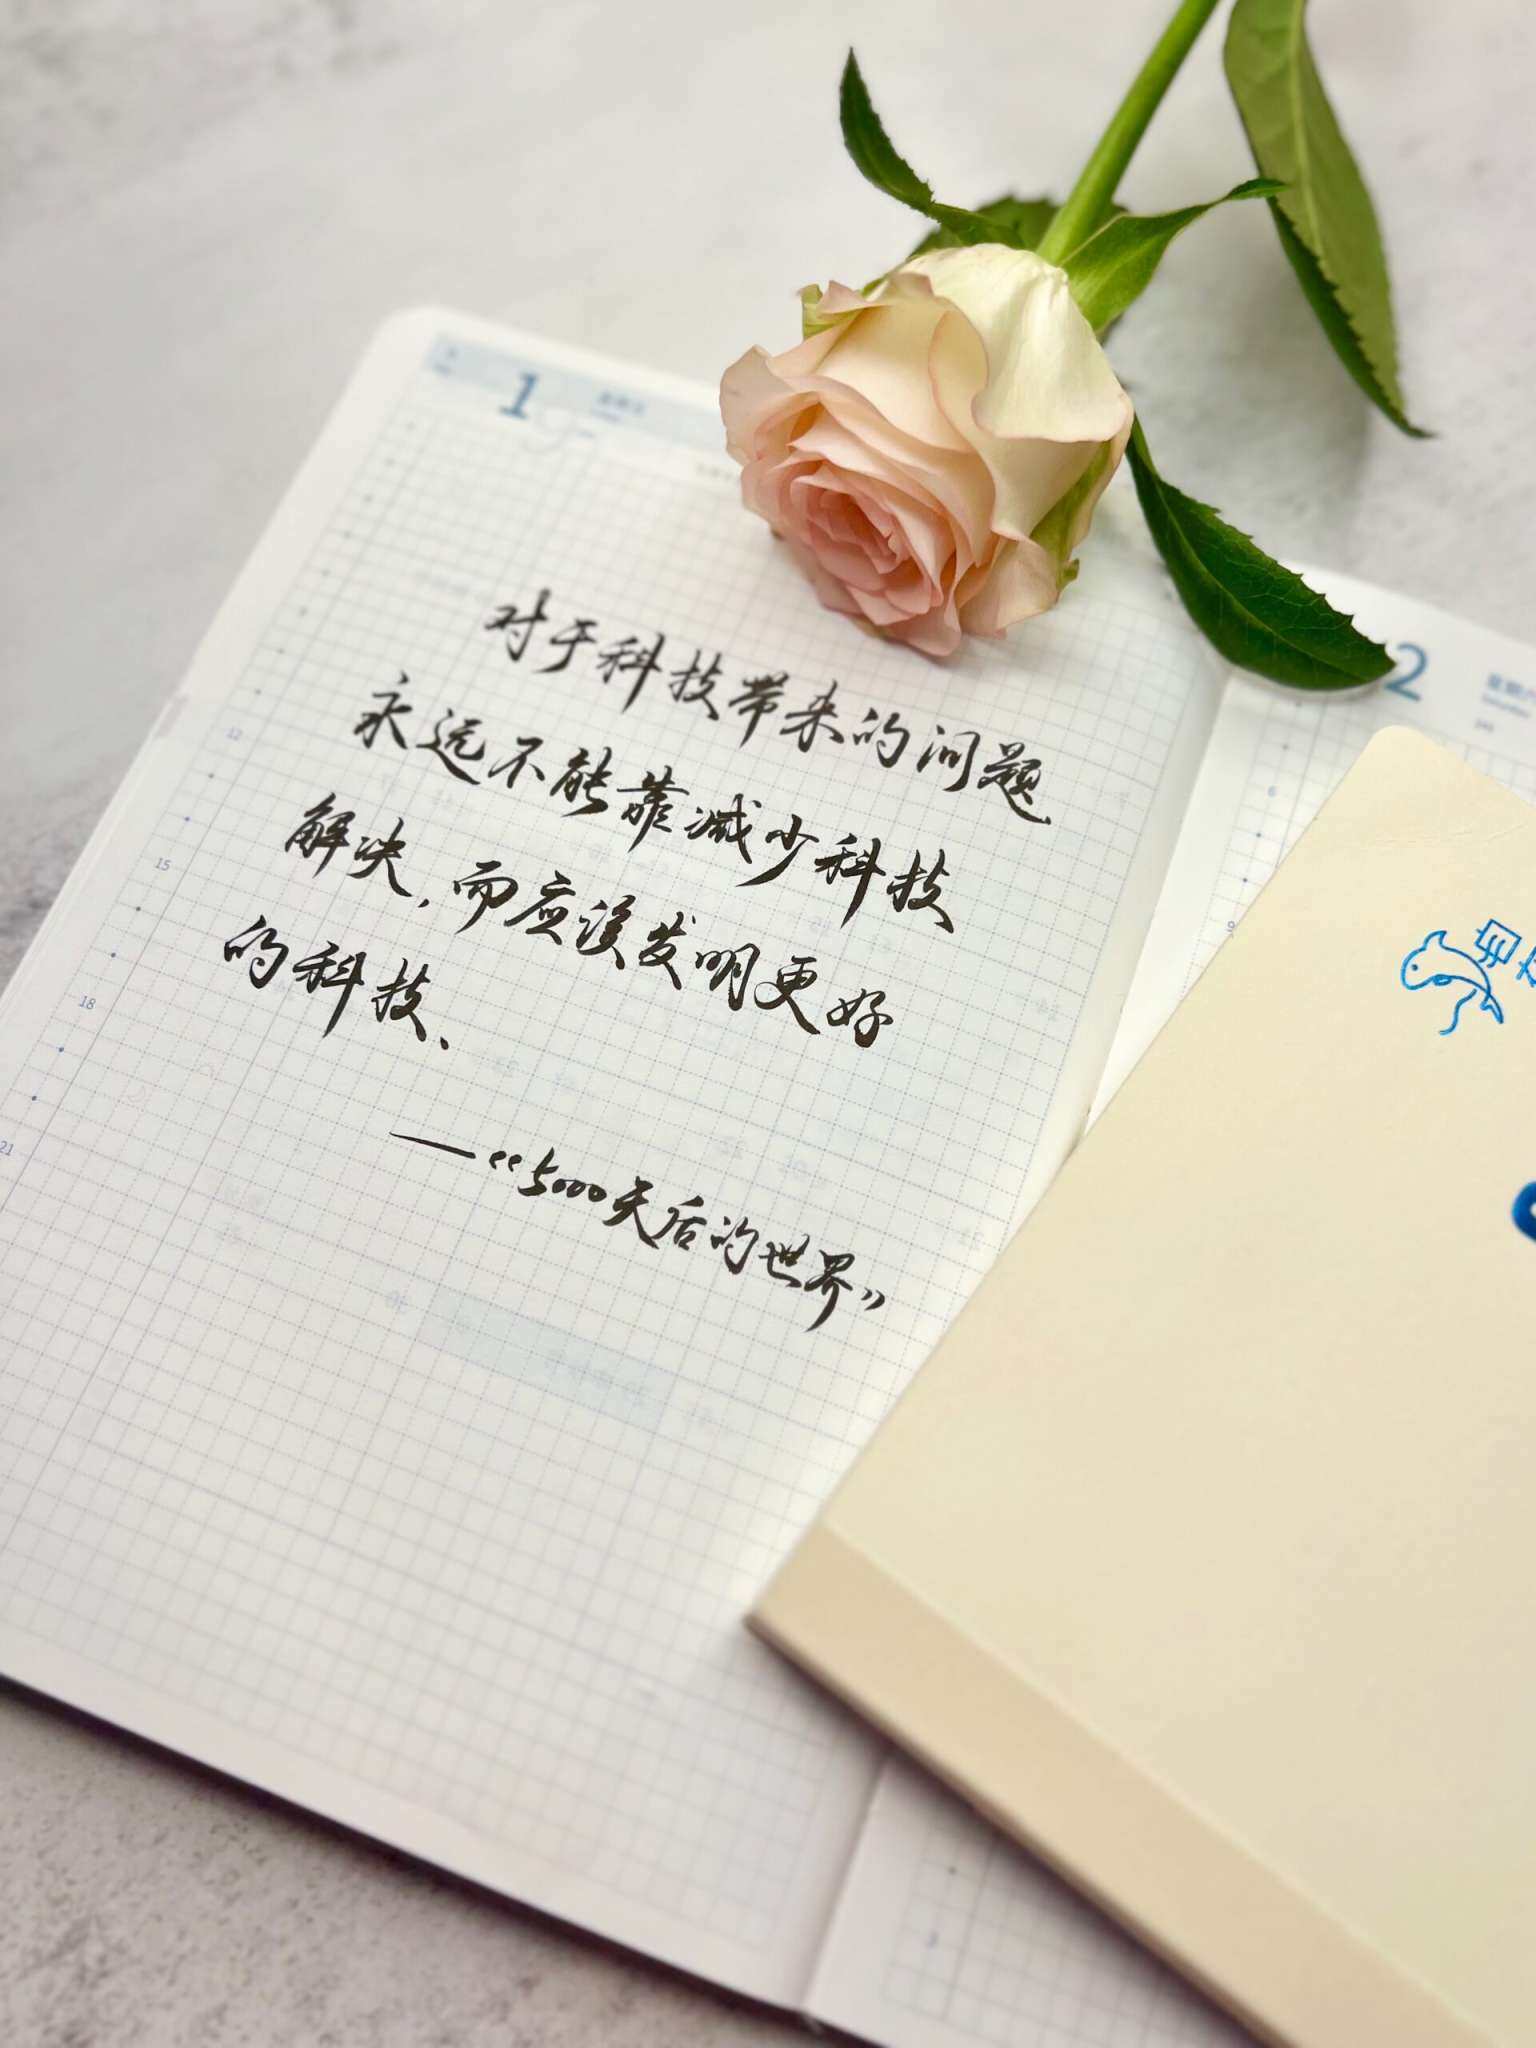 1
对于科技带来的问题
永远不能靠减少科技
解决,而应该发明更好
的科技、
——《5000天后的世界》
12
15
18
21
2
6
9